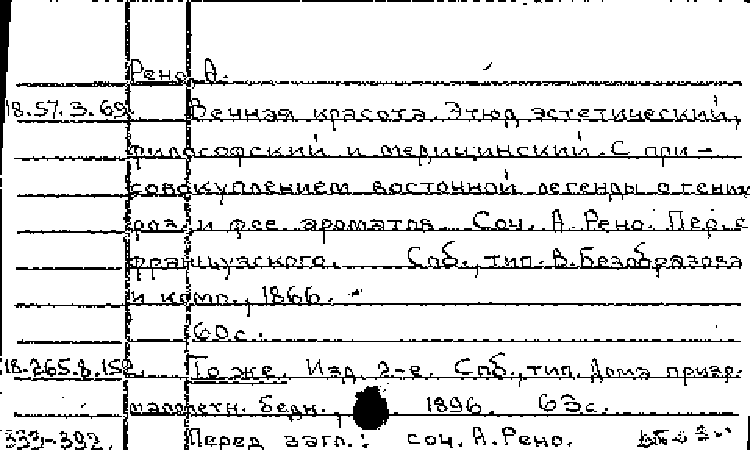 Рено, А.
18.57.3.69. Вечная красота. Этюд эстетический,
философский и медицинский. С при-
совокуплением восточной легенды о гении
роз и фее ароматов. Соч. А. Рено. Пер. с
французского. Спб., тип. В. Безобразова
и комп., 1866.
60с.
18.265.8.152. То же. Изд. 2-е. Спб., тип. Дома призр.
малолетн. бедн., 1896. 63с.
333-392. Перед загл.: соч. А. Рено.